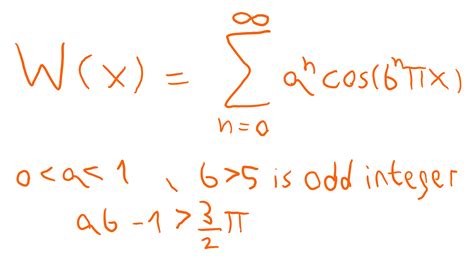 W(x) = ∑_{n=0}^{∞} aⁿ cos(bⁿπx)
0<a<1 、 b>5 is odd integer
ab - 1 > 3/2 π